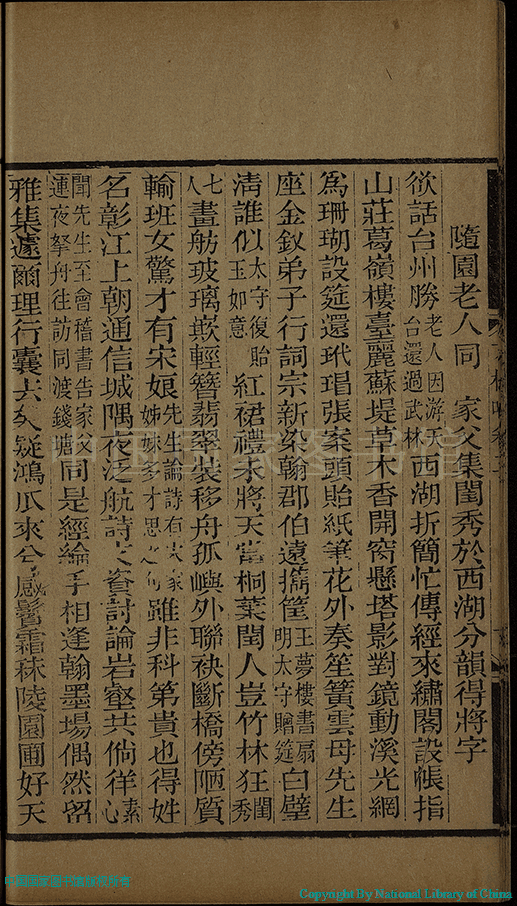 隨園老人同　家父集閨秀於西湖分韻得將字
欲話台州勝老人因游天台還過武林西湖折簡忙傳經來繡閣設帳指
山莊葛嶺樓臺麗蘇堤草木香開窗懸塔影對鏡動溪光網
為珊瑚設筵還玳瑁張案頭貽紙筆花外奏笙簧雲母先生
座金釵弟子行詞宗新染翰郡伯遠攜筐王夢樓書扇明太守贈筵白璧
清誰似太守復貽玉如意紅裙禮未將天當桐葉閏人豈竹林狂閨秀
七人畫舫玻瓈嵌輕簪翡翠裝移舟孤嶼外聯袂斷橋傍陋質
輸班女驚才有宋娘先生論詩有宋家姊妹多才思之句雖非科第貴也得姓
名彰江上朝通信城隅夜泛航詩文資討論岩壑共徜徉素心
聞先生至會稽書告家父連夜拏舟往訪同渡錢塘同是經綸手相逢翰墨場偶然留
雅集遽爾理行囊去久疑鴻爪來今感鬢霜秣陵園圃好天
中国国家图书馆
中国国家图书馆版权所有
Copyright By National Library of China